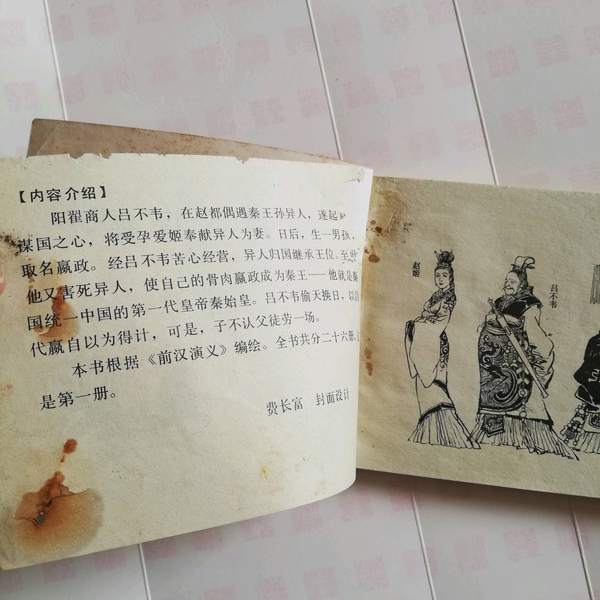 【内容介绍】
阳翟商人吕不韦，在赵都偶遇秦王孙异人，遂起
谋国之心，将受孕爱姬奉献异人为妻。日后，生一男孩，
取名嬴政。经吕不韦苦心经营，异人归国继承王位，至此
他又害死异人，使自己的骨肉嬴政成为秦王——他就是秦
国统一中国的第一代皇帝秦始皇。吕不韦偷天换日，以吕
代嬴自以为得计，可是，子不认父徒劳一场。
本书根据《前汉演义》编绘。全书共分二十六册，
是第一册。
费长富 封面设计
赵姬
吕不韦